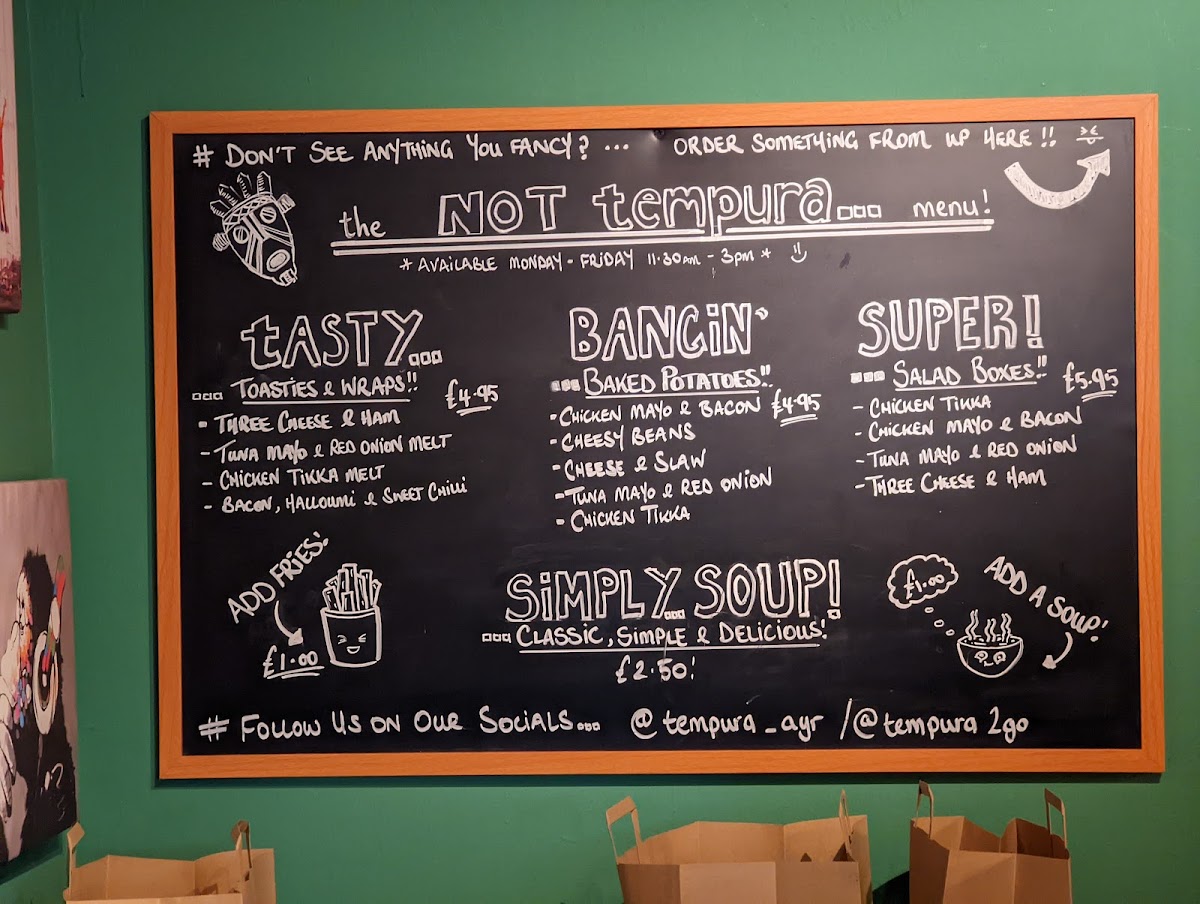 # DON'T SEE ANYTHING YOU FANCY? ... ORDER SOMETHING FROM UP HERE!!
the NOT tempura... menu!
* AVAILABLE MONDAY - FRIDAY 11.30AM - 3PM *
tASTY...
... TOASTIES & WRAPS!! £4.95
- THREE CHEESE & HAM
- TUNA MAYO & RED ONION MELT
- CHICKEN TIKKA MELT
- BACON, HALLOUMI & SWEET CHILLI
BANGiN'
... BAKED POTATOES!! £4.95
- CHICKEN MAYO & BACON
- CHEESY BEANS
- CHEESE & SLAW
- TUNA MAYO & RED ONION
- CHICKEN TIKKA
SUPER!
... SALAD BOXES!! £5.95
- CHICKEN TIKKA
- CHICKEN MAYO & BACON
- TUNA MAYO & RED ONION
- THREE CHEESE & HAM
ADD FRIES!
£1.00
SiMPLY... SOUP!
... CLASSIC, SIMPLE & DELICIOUS!
£2.50!
£1.00
ADD A SOUP!
# FOLLOW US ON OUR SOCIALS... @tempura_ayr /@tempura2go